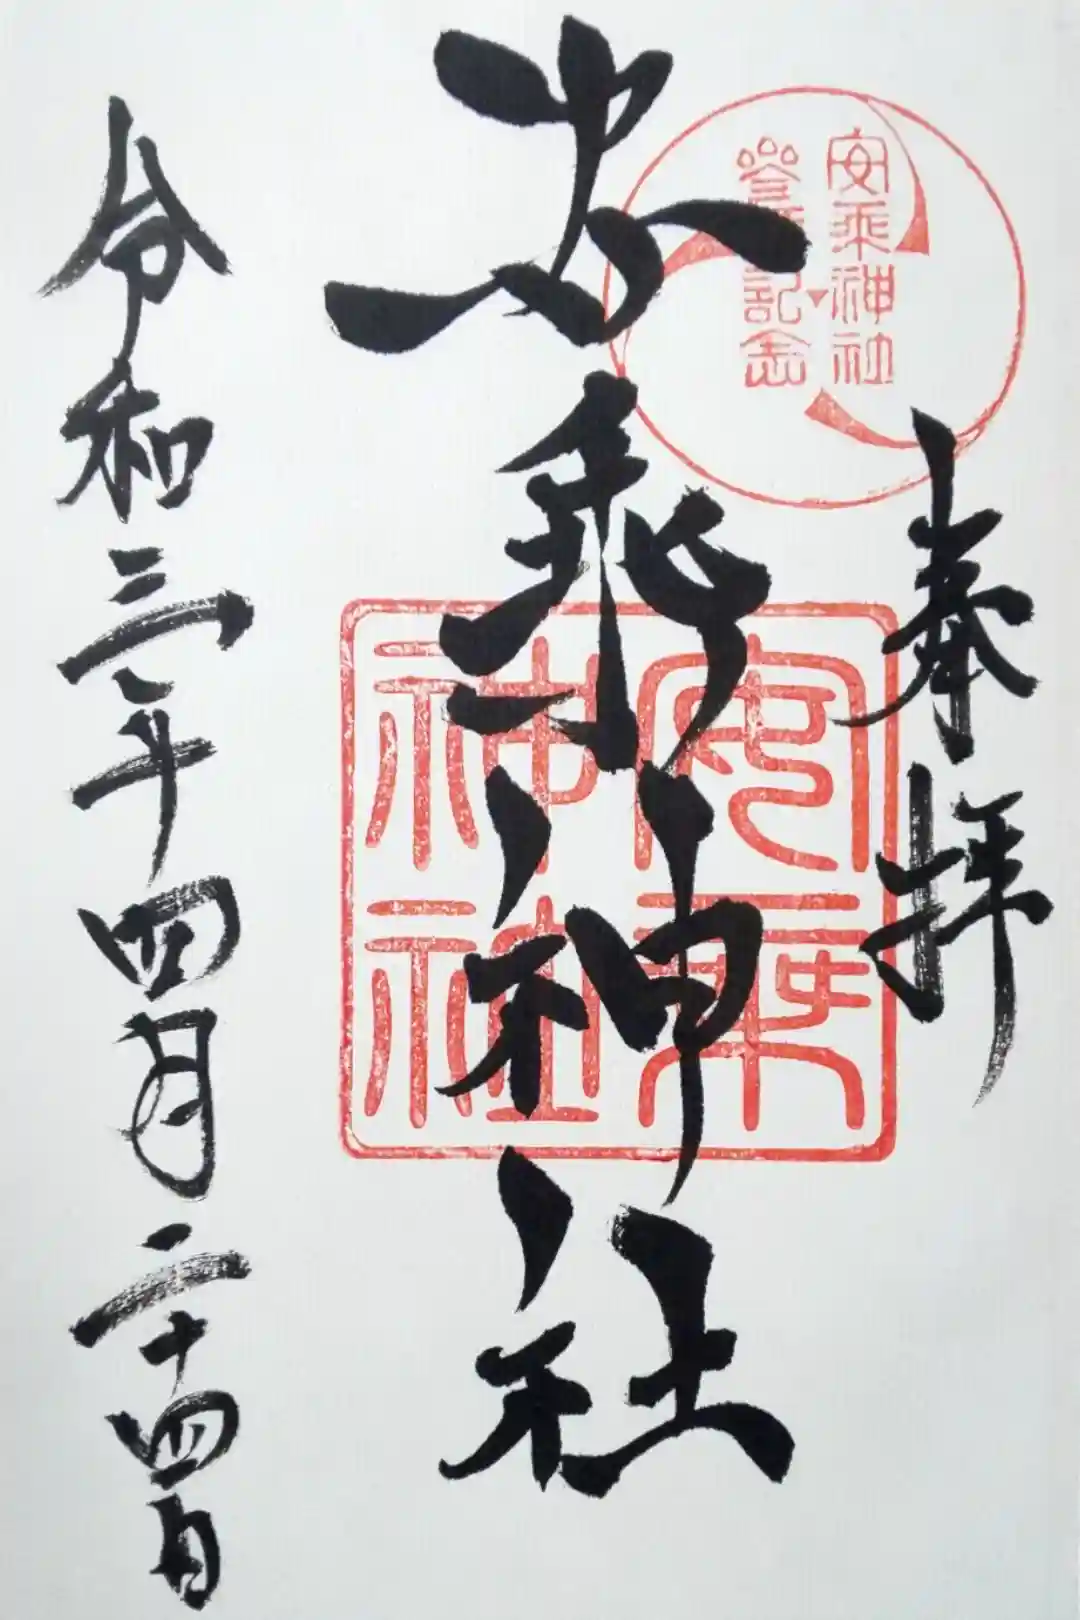 奉拝
安乗神社
令和三年四月二十四日
安乗神社
参拝記念
安乗
神社